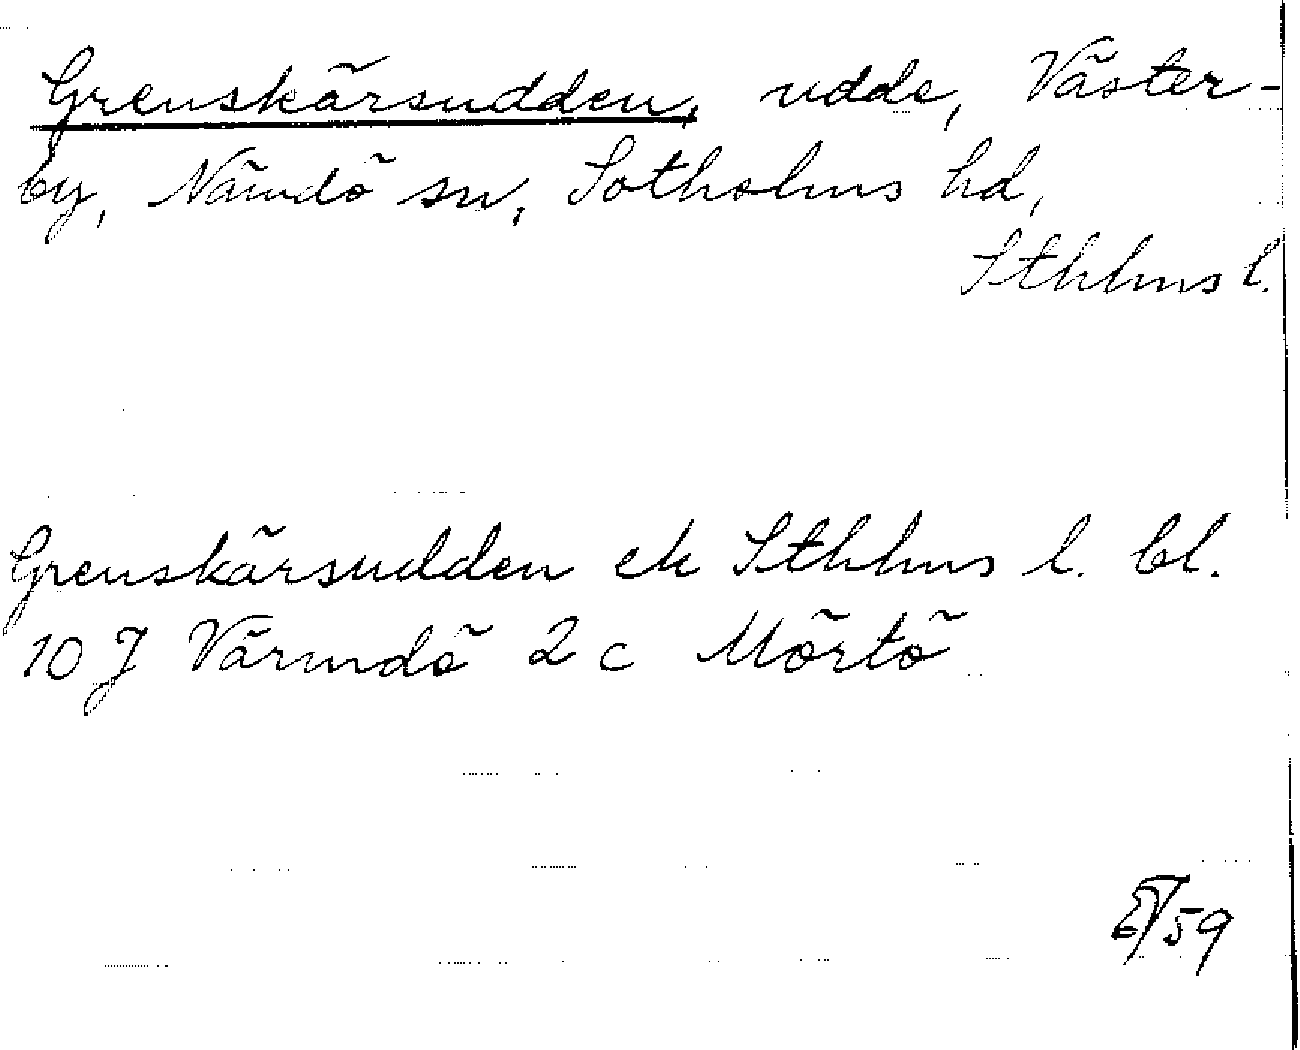 Grenskärsudden, udde, Väster-
by, Nämdö sn, Sotholms hd,
Sthlms l.
Grenskärsudden ek Sthlms l. bl.
10 J Värmdö 2 c Mörtö
/59